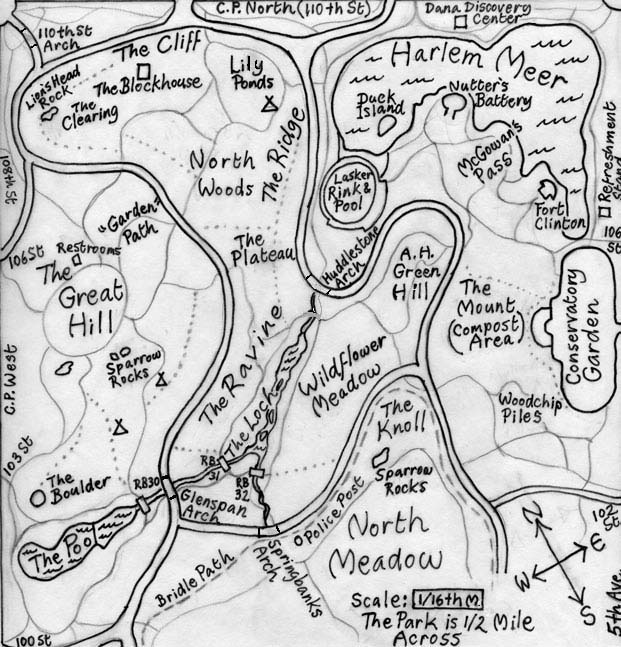 C.P. North (110th St)
Dana Discovery
Center
110th St
Arch
The Cliff
Harlem Meer
Lily
Ponds
Lions Head
Rock
The Blockhouse
The
Clearing
Nutter's
Battery
Duck
Island
McGowan's
Pass
Refreshment
Stand
108th St
North
Woods
The Ridge
Lasker
Rink &
Pool
Fort
Clinton
"Garden"
Path
106 St
Restrooms
The
Great
Hill
The
Plateau
Huddlestone
Arch
A.H.
Green
Hill
106
St
The
Mount
(Compost
Area)
Conservatory
Garden
C.P. West
Sparrow
Rocks
The Ravine
Wildflower
Meadow
The Loch
The
Knoll
Woodchip
Piles
103 St
The
Boulder
RB30
RB
31
RB
32
Sparrow
Rocks
Glenspan
Arch
Police Post
The Pool
North
Meadow
102
St
N
E
W
S
Bridle Path
Springbanks
Arch
Scale: 1/16th M.
The Park is 1/2 Mile
Across
100 St
5th Ave.